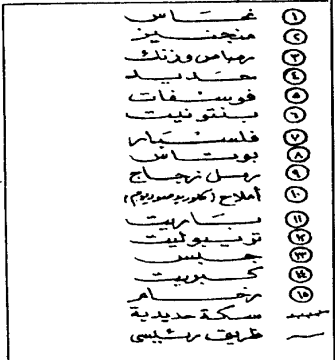 ١ نحاس
٢ منجنيز
٣ رصاص وزنك
٤ حديد
٥ فوسفات
٦ بنتونيت
٧ فلسبار
٨ بوتاس
٩ رمل زجاج
١٠ أملاح (كلوريد صوديوم)
١١ باريت
١٢ تريبوليت
١٣ جبس
١٤ كبريت
١٥ رخام
سكة حديدية
طريق رئيسي